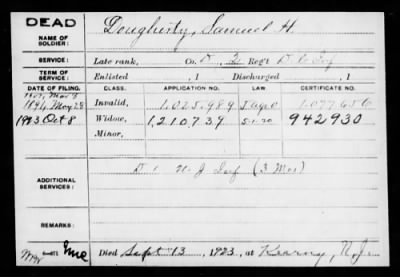 DEAD
NAME OF SOLDIER:
Dougherty, Samuel H.
SERVICE:
Late rank, Co. D, 2 Reg't D.C. Inf
TERM OF SERVICE:
Enlisted , 1 Discharged , 1
DATE OF FILING. CLASS. APPLICATION NO. LAW. CERTIFICATE NO.
1894, May 28 Invalid, 1.025.989
1923 Oct 8 Widow, 1,210,739 942930
Minor,
ADDITIONAL SERVICES:
N J Inf (3 Mos)
REMARKS:
Died Sept 13, 1923, at Kearny, N.J.